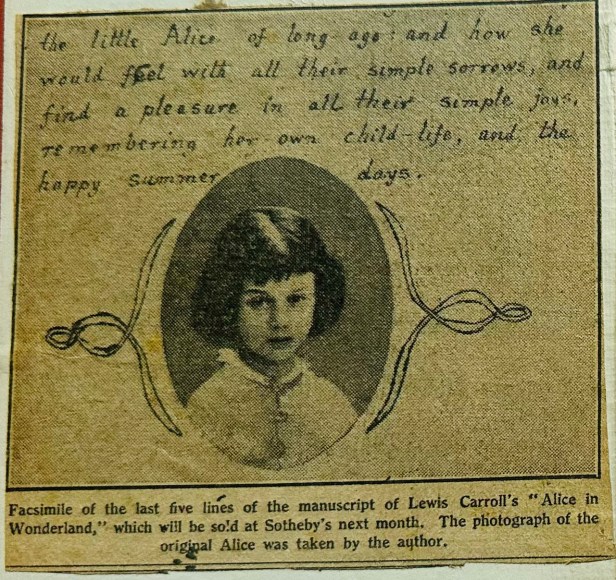 the little Alice of long ago: and how she
would feel with all their simple sorrows, and
find a pleasure in all their simple joys,
remembering her own child-life, and the
happy summer days.
Facsimile of the last five lines of the manuscript of Lewis Carroll's "Alice in
Wonderland," which will be sold at Sotheby's next month. The photograph of the
original Alice was taken by the author.